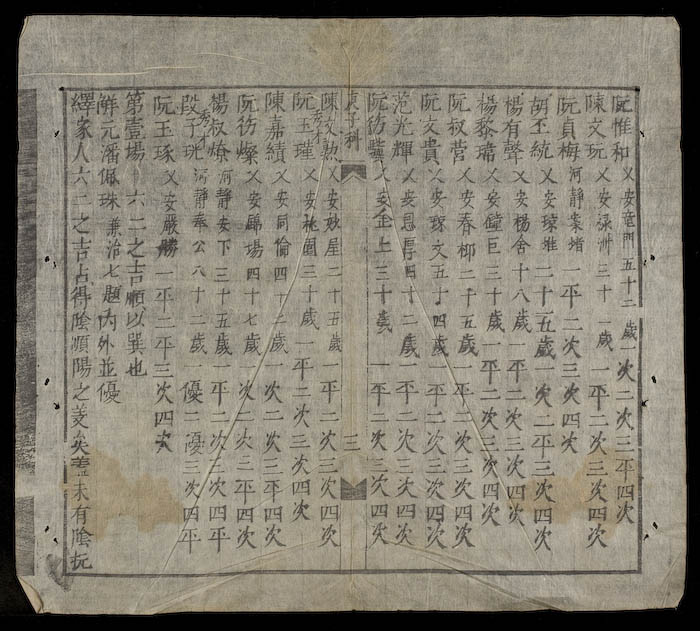 阮惟和 乂安 龍門五十二歲 一次二次三平四次
陳文玩 乂安祿洲三十一歲 一平二次三次四次
阮貞梅 河靜 一平二次三次四次
胡丕統 乂安瓊堆二十五歲 一次二平三次四次
楊有聲 乂安楊舍十八歲 一平二次三次四次
楊黎 乂安鐘巨三十歲 一平二次三次四次
阮叔营 乂安春柳二十五歲 一平二次三次四次
阮文貴 乂安 文五十四歲 一次二平三次四次
范光輝 乂安恩厚四十二歲 一平二次三次四次
阮彷 乂安企上三十歲 一平二次三次四次
庚子科 三
陳文 乂安妙屋二十五歲 一平二次三次四次
秀才
阮玉瑾 乂安桃園三十歲 一平二次三次四次
陳嘉績 乂安同倫四十二歲 一次二次三平四次
阮彷燦 乂安錦場四十七歲 一次二次三平四次
楊叔 河靜安下三十五歲 一平二次三次四平
秀才
段子珖 河靜奉公八十二歲 一優二優三次四平
阮玉琢 乂安嚴勝 一平二平三次四次
第壹塲 六二之吉順以巽也
解元潘佩珠 兼治七題内外並優
繹家人六二之吉占得陰順陽之 矣蓋未有陰抗